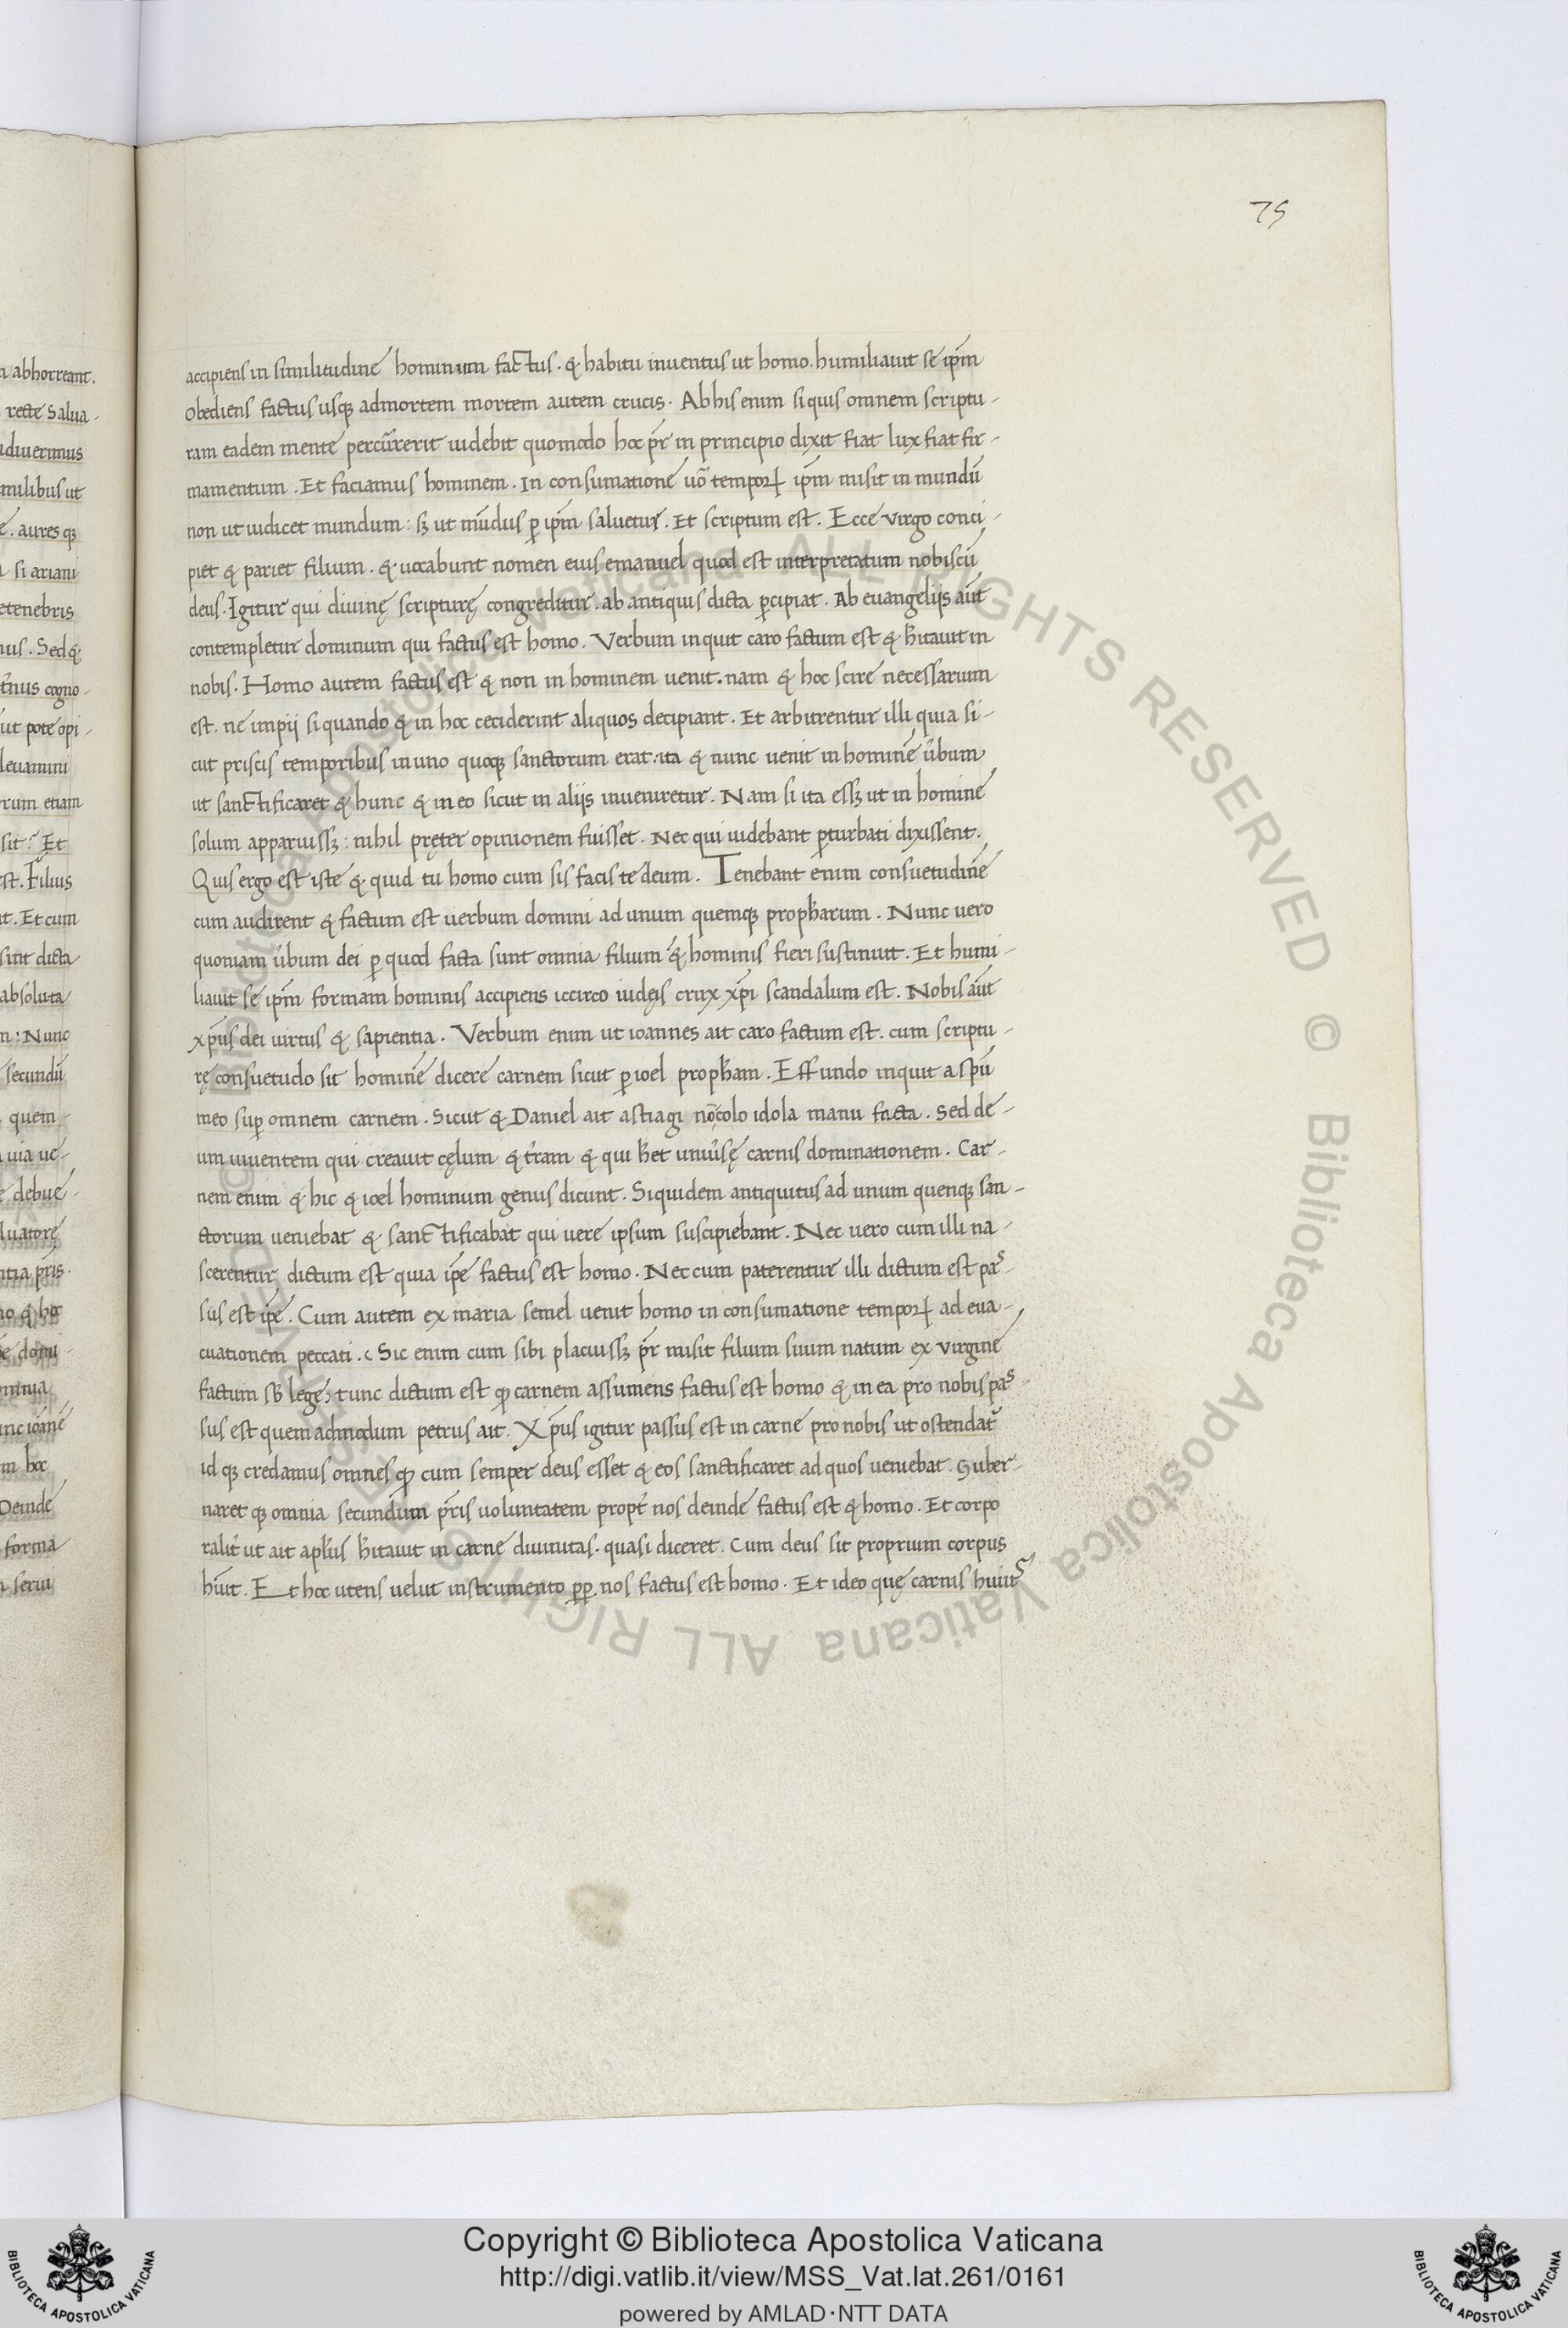 75
accipiens in similitudinē hominum factus. & habitu inventus ut homo. humiliavit se ip̄m
obediens factus usq; admortem mortem autem crucis. Ab his enim si quis omnem scriptu-
ram eadem mente percurrerit videbit quomodo hoc pr̄ in principio dixit fiat lux fiat fir-
mamentum. Et faciamus hominem. In consumatione vō tempoꝝ ip̄m misit in mundū
non ut iudicet mundum: sꝫ ut mūdus ꝑ ip̄m salvetur. Et scriptum est. Ecce virgo conci-
piet & pariet filium. & vocabunt nomen eius emanuel quod est interpretatum nobiscū
deus. Igitur qui divinę scripturę congreditur. ab antiquis dicta ꝑcipiat. Ab euangelijs aūt
contempletur dominum qui factus est homo. Verbum inquit caro factum est & h̄itavit in
nobis. Homo autem factus est & non in hominem venit. nam & hoc scire necessarium
est. ne impij si quando & in hoc ceciderint aliquos decipiant. Et arbitrentur illi quia si-
cut priscis temporibus in uno quoq; sanctorum erat: ita & nunc venit in hominē v̄bum
ut sanctificaret & hunc & in eo sicut in alijs inveniretur. Nam si ita essꝫ ut in homine
solum apparuissꝫ: nihil pręter opinionem fuisset. Nec qui videbant ꝑturbati dixissent.
Quis ergo est iste & quid tu homo cum sis facis te deum. Tenebant enim consuetudinē
cum audirent & factum est verbum domini ad unum quemq; proph̄arum. Nunc vero
quoniam v̄bum dei ꝑ quod facta sunt omnia filium & hominis fieri sustinuit. Et humi-
liavit se ip̄m formam hominis accipiens iccirco iudęis crux xp̄i scandalum est. Nobis aūt
xp̄us dei virtus & sapientia. Verbum enim ut ioannes ait caro factum est. cum scriptu-
rę consuetudo sit hominē dicere carnem sicut ꝑ ioel proph̄am. Effundo inquit a spū
meo suꝑ omnem carnem. Sicut & Daniel ait astiagi nō colo idola manu facta. Sed de-
um viventem qui creavit cęlum & t̄ram & qui h̄et univ̄sę carnis dominationem. Car-
nem enim & hic & ioel hominum genus dicunt. Siquidem antiquitus ad unum quenq; san-
ctorum veniebat & sanctificabat qui vere ipsum suscipiebant. Nec vero cum illi na-
scerentur dictum est quia ip̄e factus est homo. Nec cum paterentur illi dictum est pas-
sus est ip̄e. Cum autem ex maria semel venit homo in consumatione tempoꝝ ad eva-
cuationem peccati. (Sic enim cum sibi placuissꝫ pr̄ misit filium suum natum ex virgine
factum sb̄ lege) tunc dictum est ꝙ carnem assumens factus est homo & in ea pro nobis pas-
sus est quemadmodum petrus ait. Xp̄us igitur passus est in carne pro nobis ut ostendat̄
id q; credamus omnes ꝙ cum semper deus esset & eos sanctificaret ad quos veniebat. Guber-
naret q; omnia secundum pr̄is voluntatem propt̄ nos deinde factus est & homo. Et corpo
ralit̄ ut ait apl̄us h̄itavit in carne divinitas. quasi diceret. Cum deus sit proprium corpus
h̄uit. Et hoc utens velut instrumento ꝓꝑ nos factus est homo. Et ideo quę carnis huius
Copyright © Biblioteca Apostolica Vaticana
http://digi.vatlib.it/view/MSS_Vat.lat.261/0161
powered by AMLAD·NTT DATA